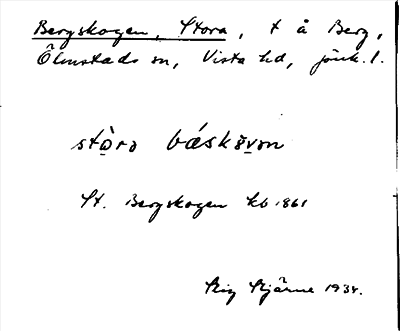 Bergskogen, Stora, t å Berg,
Ölmstads sn, Vista hd, jönk. l.
stòra báskövən
St. Bergskogen kb 1861
Stig Stjärne 1934.